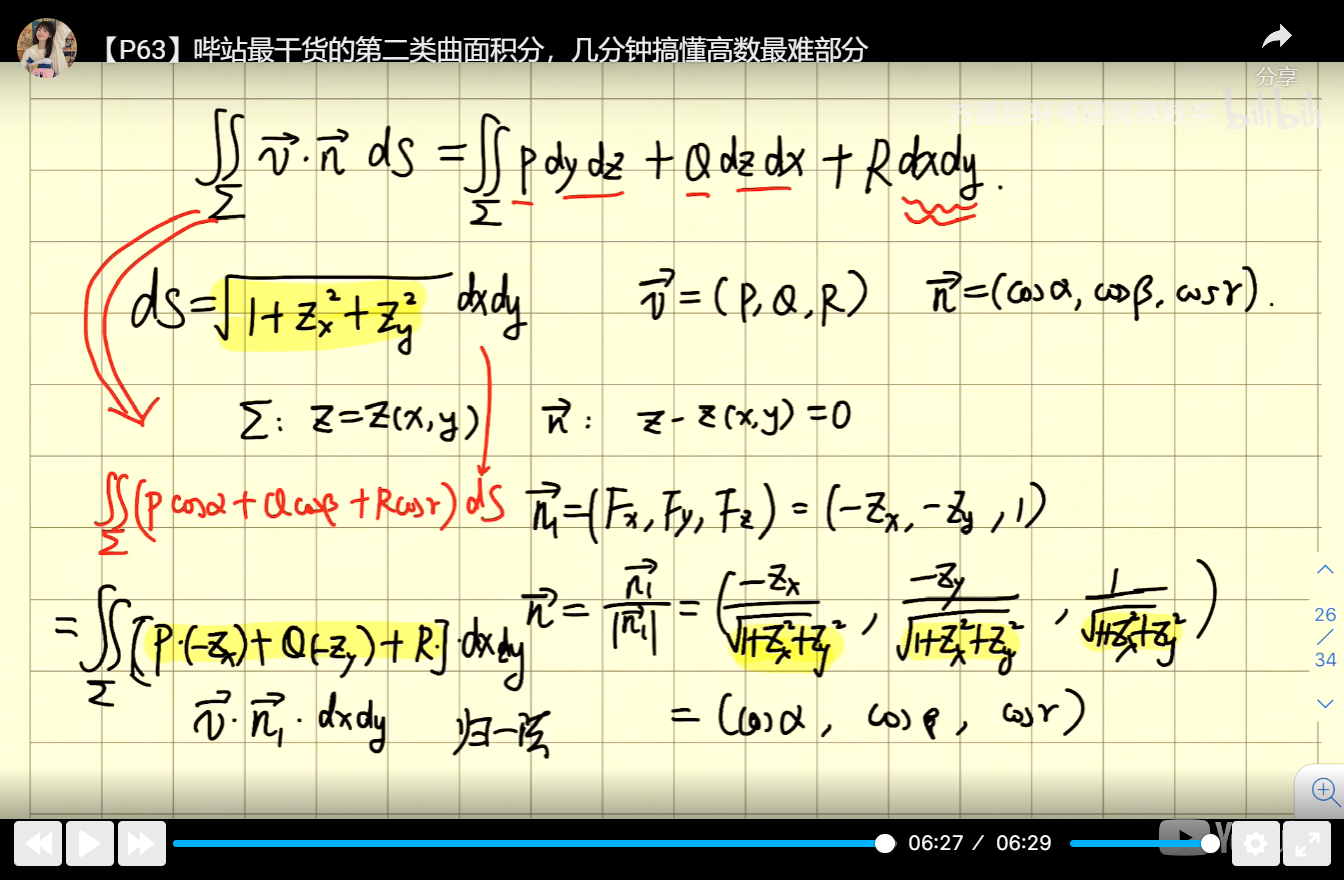 【P63】哔站最干货的第二类曲面积分，几分钟搞懂高数最难部分
分享
bilibili
∬_Σ v⃗·n⃗ dS = ∬_Σ P dy dz + Q dz dx + R dxdy.
dS = √(1+z_x²+z_y²) dxdy v⃗=(P,Q,R) n⃗=(cosα, cosβ, cosr).
Σ: z=z(x,y) n⃗: z-z(x,y)=0
∬_Σ (P cosα + Q cosβ + R cosr) dS n⃗₁=(F_x, F_y, F_z) = (-z_x, -z_y, 1)
= ∬_Σ [P·(-z_x) + Q(-z_y) + R]·dxdy n⃗ = n⃗₁/|n⃗₁| = (-z_x/√(1+z_x²+z_y²), -z_y/√(1+z_x²+z_y²), 1/√(1+z_x²+z_y²))
v⃗·n⃗₁·dxdy 归一 = (cosα, cosβ, cosr)
26
34
06:27 / 06:29